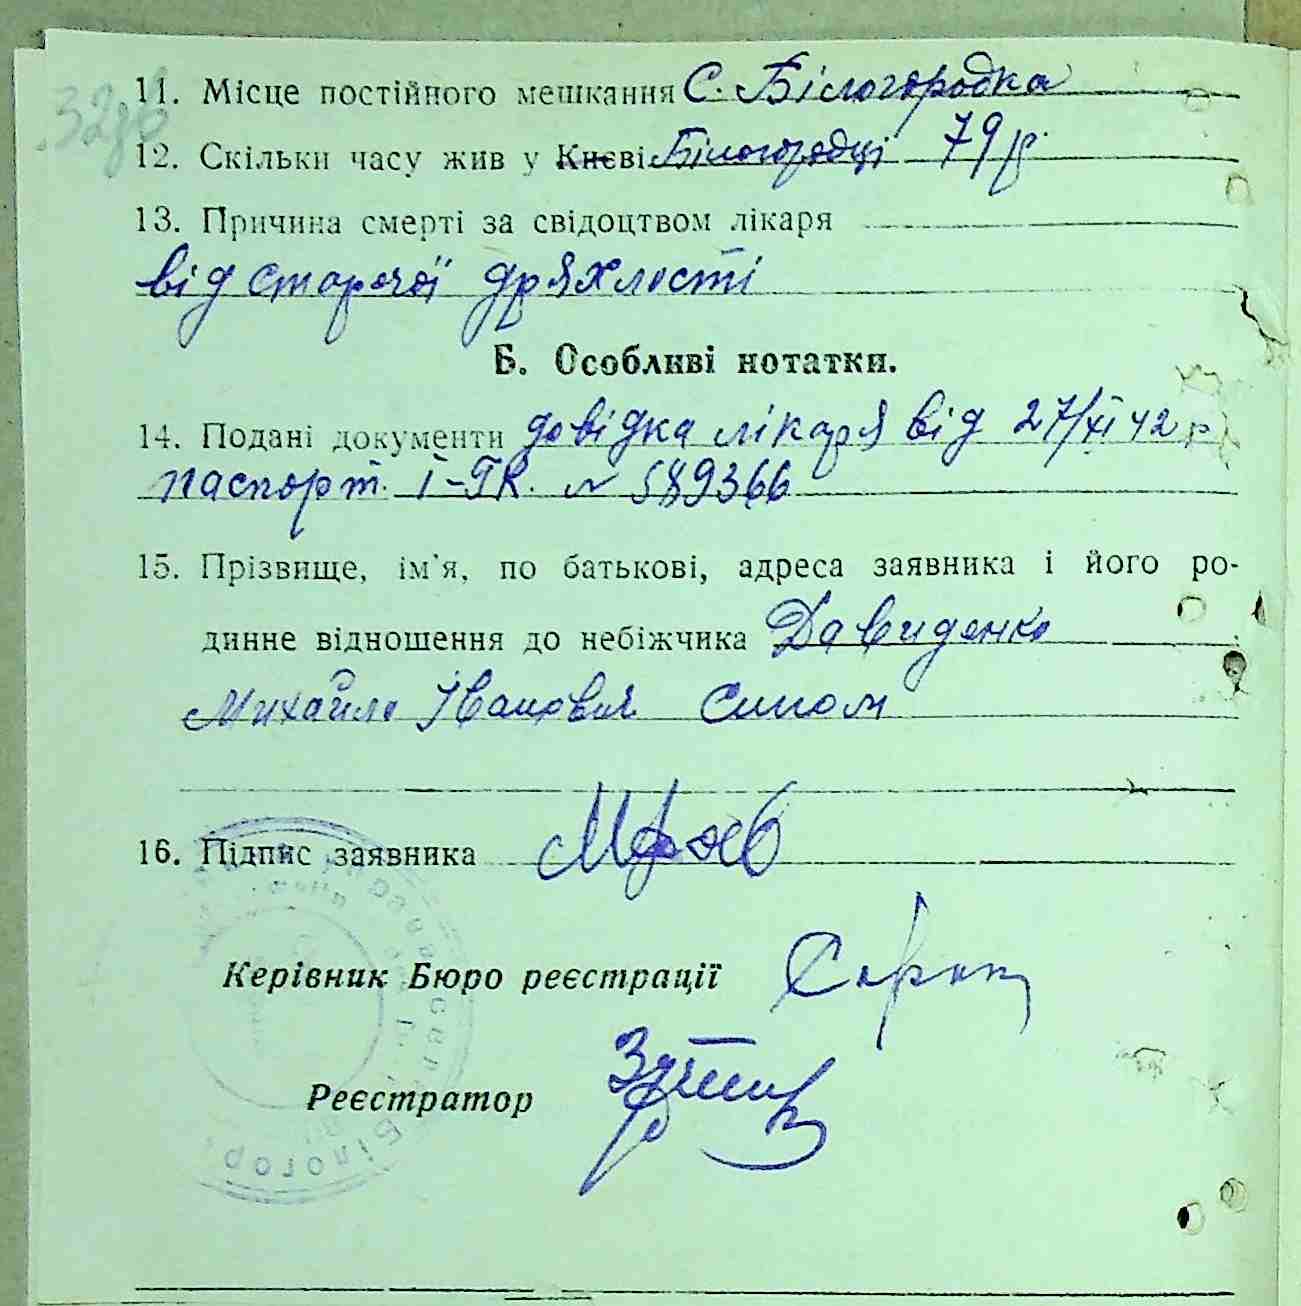 32зв
11. Місце постійного мешкання С. Білогородка
12. Скільки часу жив у Києві Білогородці 79 р.
13. Причина смерті за свідоцтвом лікаря
від старочої дряхлості
Б. Особливі нотатки.
14. Подані документи довідка лікаря від 27/XI 42 р
паспорт. І-ГК. № 589366
15. Прізвище, ім'я, по батькові, адреса заявника і його ро-
динне відношення до небіжчика Давиденко
Михайло Іванович Сином
16. Підпис заявника
Керівник Бюро реєстрації
Реєстратор
Білогор